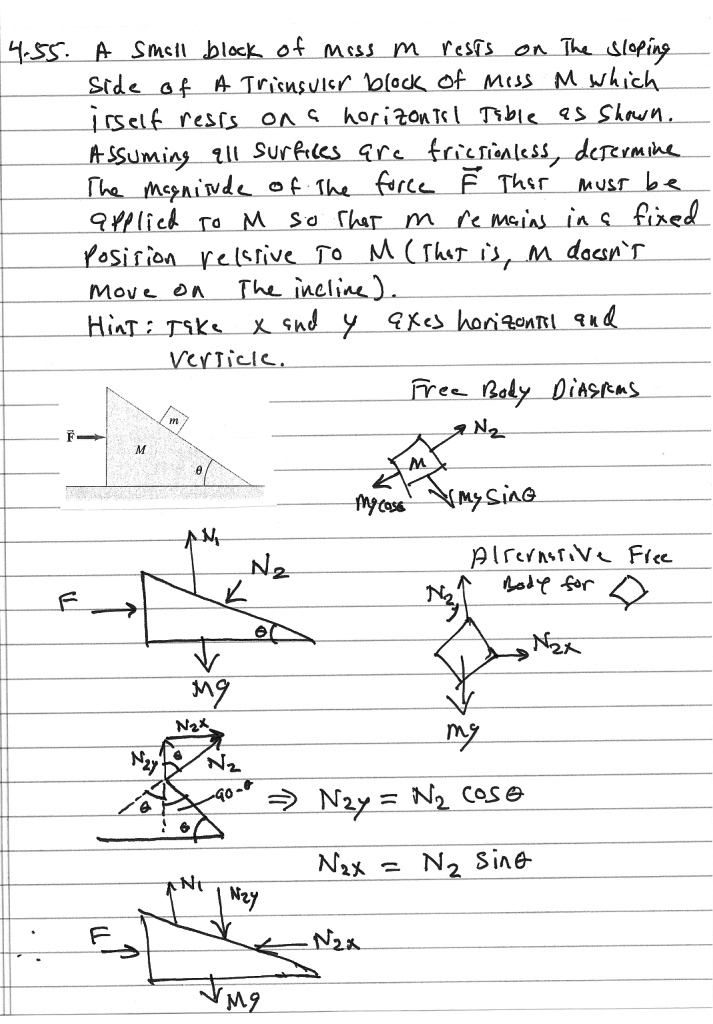 4.55. A small block of mass m rests on the sloping
side of A Triangular block of mass M which
itself rests on a horizontal Table as shown.
Assuming all surfaces are frictionless, determine
The magnitude of the force F⃗ That must be
applied to M so that m remains in a fixed
position relative to M (That is, m doesn't
move on The incline).
Hint: Take x and y axes horizontal and
verticle.
Free Body Diagrams
F⃗
m
M
θ
N2
M
Mg cosθ
Mg Sinθ
N1
N2
F
θ
Mg
Alternative Free
Body for
N2y
N2x
mg
N2x
N2y
θ
N2
θ
90-θ
θ
⇒ N2y = N2 cosθ
N2x = N2 Sinθ
∴
N1
N2y
F
N2x
Mg